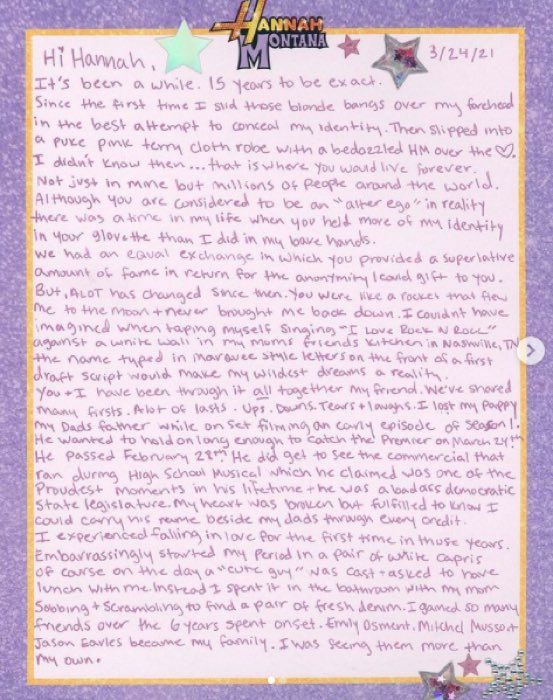 HANNAH
MONTANA
Hi Hannah,
3/24/21
It's been a while. 15 years to be exact.
Since the first time I slid those blonde bangs over my forehead
in the best attempt to conceal my identity. Then slipped into
a puke pink terry cloth robe with a bedazzled HM over the ♡.
I didn't know then... that is where you would live forever.
Not just in mine but millions of people around the world.
Although you are considered to be an "alter ego" in reality
there was a time in my life when you held more of my identity
in your glovette than I did in my bare hands.
We had an equal exchange in which you provided a superlative
amount of fame in return for the anonymity I could gift to you.
But, ALOT has changed since then. You were like a rocket that flew
me to the moon + never brought me back down. I couldnt have
imagined when taping myself singing "I Love Rock N Roll"
against a white wall in my moms friends kitchen in Nashville, TN
the name typed in marquee style letters on the front of a first
draft script would make my wildest dreams a reality.
You + I have been through it all together my friend. We've shared
many firsts. Alot of lasts. Ups. Downs. Tears + laughs. I lost my Pappy
my Dads father while on set filming an early episode of season 1.
He wanted to hold on long enough to catch the Premier on March 24th
He passed February 28th He did get to see the commercial that
ran during High School Musical which he claimed was one of the
Proudest moments in his lifetime + he was a badass democratic
State legislature. My heart was broken but fulfilled to know I
could carry his name beside my dads through every credit.
I experienced falling in love for the first time in those years.
Embarrassingly started my Period in a pair of white capris
of course on the day a "cute guy" was cast + asked to have
lunch with me. Instead I spent it in the bathroom with my mom
Sobbing + Scrambling to find a pair of fresh denim. I gained so many
friends over the 6 years spent on set. Emily Osment. Mitchel Musso. +
Jason Earles became my family. I was seeing them more than
my own.